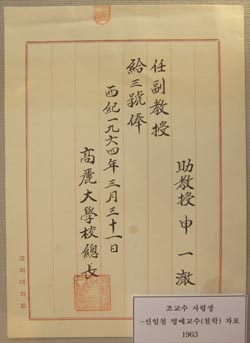 助教授 申一澈
任副教授
給三號俸
西紀一九六四年三月三十一日
高麗大學校總長
고려대학교
조교수 사령장
-신일철 명예교수(철학) 자료
1963